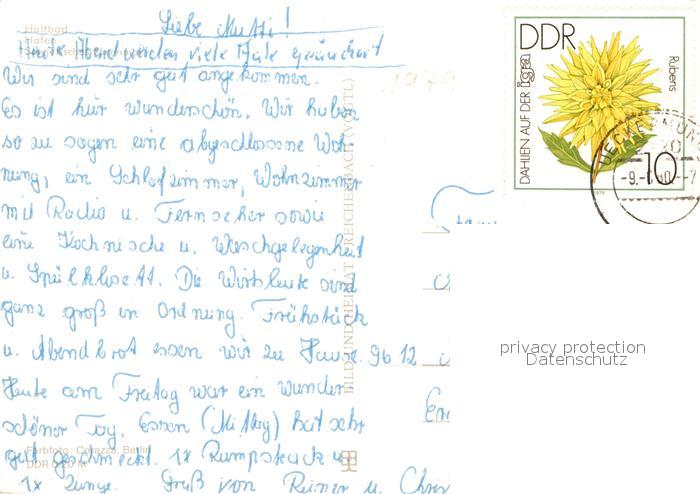 Liebe Mutti!
Heute Abend werden viele Aale geräuchert
Haffbad
Wir sind sehr gut angekommen.
1979
Es ist hier wunderschön. Wir haben
so zu sagen eine abgeschlossene Woh
nung, ein Schlafzimmer, Wohnzimmer
mit Radio u. Fernseher sowie
eine Kochnische u. Waschgelegenheit
u. Spülklosett. Die Wirtsleute sind
ganz groß in Ordnung. Frühstück
u. Abendbrot essen wir zu Hause.
Heute am Freitag war ein wunder
schöner Tag. Essen (Mittag) hat sehr
gut geschmeckt. 1x Rumpsteack u
1x Zunge. Gruß von Reiner u. Chri
Farbfoto: Corazza, Berlin
DDR 0,20 M
BILD UND HEIMAT REICHENBACH (VOGTL)
96 12
DDR
DAHLIEN AUF DER
Rubens
10
1979
UECKERMÜN
-9.
privacy protection
Datenschutz